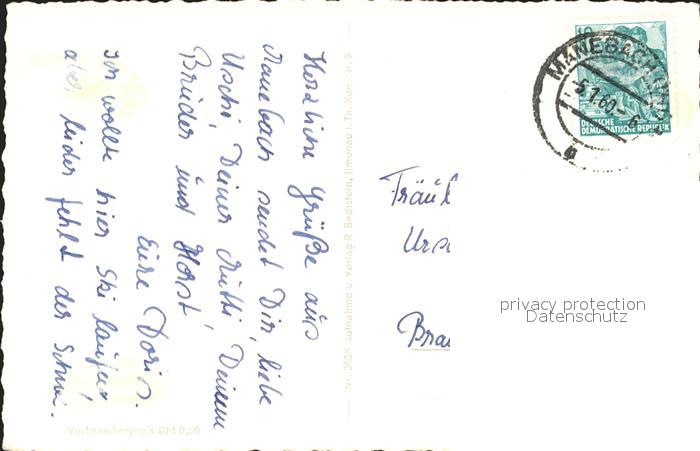 Herzliche Grüße aus
Manebach sendet Dir, liebe
Uschi, Deiner Mutti, Deinem
Bruder und Horst,
Eure Doris.
Ich wollte hier Ski laufen,
aber leider fehlt der Schnee.
Verbraucherpreis DM 0,20
Nr. Aufnahme u. Verlag R. Bechstein, Ilmenau i. Th. Reg. Nr. 9
MANEBACH
-5.1.60-
a
10
DEUTSCHE
DEMOKRATISCHE REPUBLIK
Fräul
Urs
Brau
privacy protection
Datenschutz